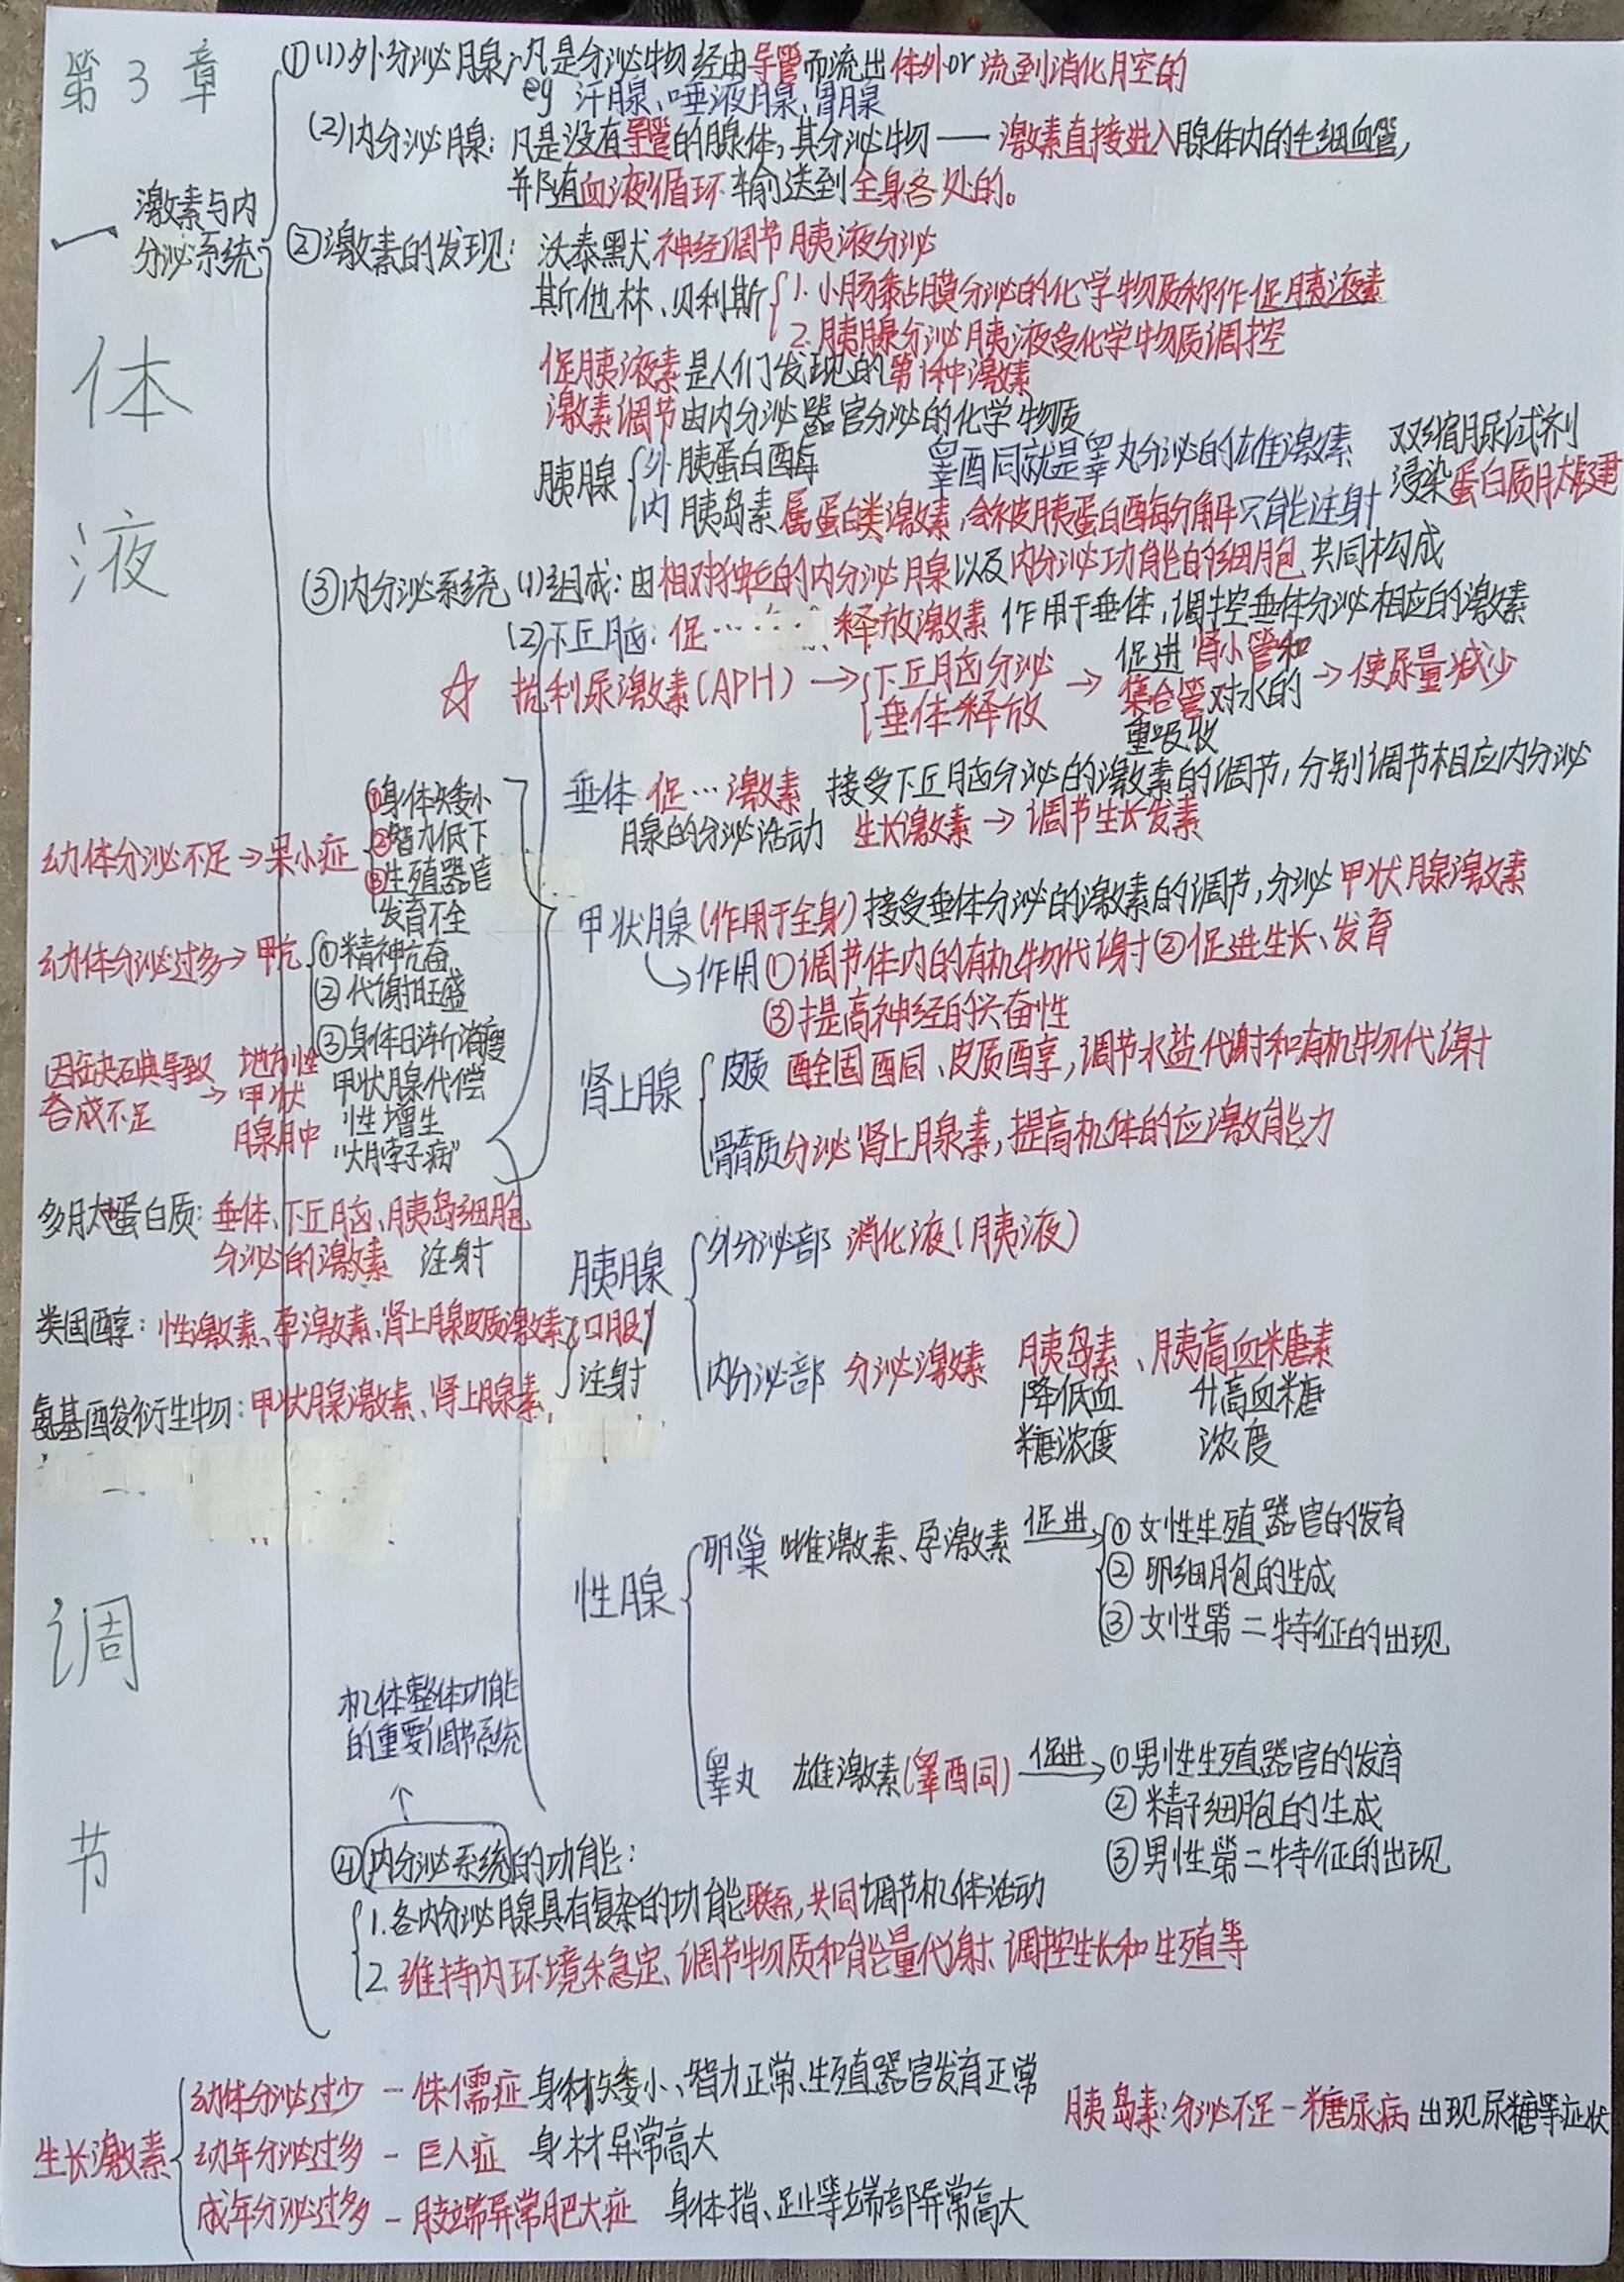 第3章
体
液
调
节
一 激素与内
分泌系统
①(1)外分泌腺:凡是分泌物经由导管而流出体外or流到消化腔的
eg 汗腺、唾液腺、胃腺
(2)内分泌腺:凡是没有导管的腺体,其分泌物——激素直接进入腺体内的毛细血管,
并随血液循环输送到全身各处的。
②激素的发现:沃泰默 神经调节胰液分泌
斯他林、贝利斯 1.小肠黏膜分泌的化学物质称作促胰液素
2.胰腺分泌胰液受化学物质调控
促胰液素是人们发现的第1种激素
激素调节 由内分泌器官分泌的化学物质
胰腺 外 胰蛋白酶 睾酮就是睾丸分泌的雄激素 双缩脲试剂
内 胰岛素 属蛋白类激素,会被胰蛋白酶分解 只能注射 浸染蛋白质肽键
③内分泌系统 (1)组成:由相对独立的内分泌腺以及内分泌功能的细胞 共同构成
(2)下丘脑:促……释放激素 作用于垂体,调控垂体分泌相应的激素
☆ 抗利尿激素(APH) → 下丘脑分泌 → 促进肾小管和 → 使尿量减少
垂体释放 集合管对水的
重吸收
垂体 促…激素 接受下丘脑分泌的激素的调节,分别调节相应内分泌
腺的分泌活动 生长激素 → 调节生长发素
甲状腺(作用于全身)接受垂体分泌的激素的调节,分泌甲状腺激素
作用①调节体内的有机物代谢②促进生长、发育
③提高神经的兴奋性
肾上腺 皮质 醛固酮、皮质醇,调节水盐代谢和有机物代谢
髓质 分泌肾上腺素,提高机体的应激能力
胰腺 外分泌部 消化液(胰液)
内分泌部 分泌激素 胰岛素、胰高血糖素
降低血 升高血糖
糖浓度 浓度
性腺 卵巢 雌激素、孕激素 促进 ①女性生殖器官的发育
②卵细胞的生成
③女性第二特征的出现
睾丸 雄激素(睾酮) 促进 ①男性生殖器官的发育
②精子细胞的生成
③男性第二特征的出现
幼体分泌不足→呆小症 ①身体矮小
②智力低下
③生殖器官
发育不全
幼体分泌过多→甲亢 ①精神亢奋
②代谢旺盛
③身体日渐消瘦
因缺碘导致 → 地方性 甲状腺代偿
合成不足 甲状 性增生
腺肿 "大脖子病"
多肽蛋白质:垂体、下丘脑、胰岛细胞
分泌的激素 注射
类固醇:性激素、孕激素、肾上腺皮质激素 口服
注射
氨基酸衍生物:甲状腺激素、肾上腺素
机体整体功能
的重要调节系统
↑
④内分泌系统的功能:
1.各内分泌腺具有复杂的功能联系,共同调节机体活动
2.维持内环境稳定、调节物质和能量代谢、调控生长和生殖等
生长激素 幼体分泌过少 - 侏儒症 身材矮小、智力正常、生殖器官发育正常
幼年分泌过多 - 巨人症 身材异常高大
成年分泌过多 - 肢端异常肥大症 身体指、趾等端部异常高大
胰岛素:分泌不足-糖尿病 出现尿糖等症状